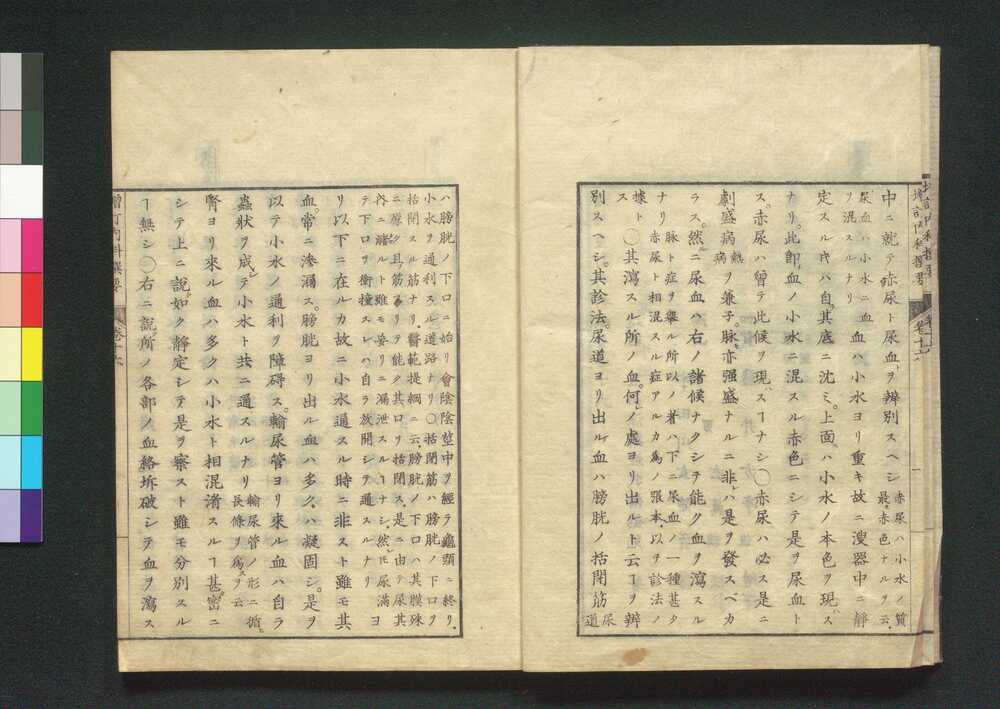 増訂内科撰要
卷十六
中ニ就テ赤尿ト尿血ヲ辨別スヘシ赤尿ハ小水ノ質最赤色ナルヲ云
尿血ハ小水ニ血ヲ混スルナリ血ハ小水ヨリ重キ故ニ溲器中ニ靜
定スル時ハ自其底ニ沈ミ上面ハ小水ノ本色ヲ現ス
ナリ此卽血ノ小水ニ混スル赤色ニシテ是ヲ尿血ト
ス赤尿ハ曾テ此候ヲ現スヿナシ〇赤尿ハ必ス是ニ
劇盛病熱病ヲ兼子脉亦强盛ナルニ非ハ是ヲ發スベカ
ラス然ニ尿血ハ右ノ諸候ナクシテ能ク血ヲ瀉スル
ナリ脉ト症ヲ擧ル所以ノ者ハ下ニ尿血ノ一種甚タ赤尿ト相混スル症アルカ爲ノ張本以ヲ診法ノ
據トス〇其瀉スル所ノ血何ノ處ヨリ出ルト云ヿヲ辨
別スヘシ其診法尿道ヨリ出ル血ハ膀胱ノ括閉筋尿道
ハ膀胱ノ下口ニ始リ會陰陰莖中ヲ經テ龜頭ニ終リ
小水ヲ通利スル道路ナリ〇括閉筋ハ膀胱ノ下口ヲ
括閉スル筋ナリ醫範提綱ニ云膀胱ノ下口ハ其膜殊
ニ厚ク且筋アリテ能ク其口ヲ括閉ス是ニ由テ尿其
內ニ瀦ルト雖モ妄リニ漏泄スルヿナシ然𪜈尿滿
テ下口ヲ衝撞スレハ自ラ放開シテ通スルナリ
ヨリ以下ニ在ルカ故ニ小水通スル時ニ非スト雖モ其
血常ニ滲漏ス膀胱ヨリ出ル血ハ多ク凝固シ是ヲ
以テ小水ノ通利ヲ障碍ス輸尿管ヨリ來ル血ハ自ラ
蟲狀ヲ成シテ小水ト共ニ通スルナリ輸尿管ノ形ニ循長條ヲ爲スヲ云
腎ヨリ來ル血ハ多クハ小水ト相混淆スルヿ甚密ニ
シテ上ニ說如ク靜定シテ是ヲ察スト雖モ分別スル
ヿ無シ〇右ニ說所ノ各部ノ血絡坼破シテ血ヲ瀉ス
増訂內科撰要
卷十六